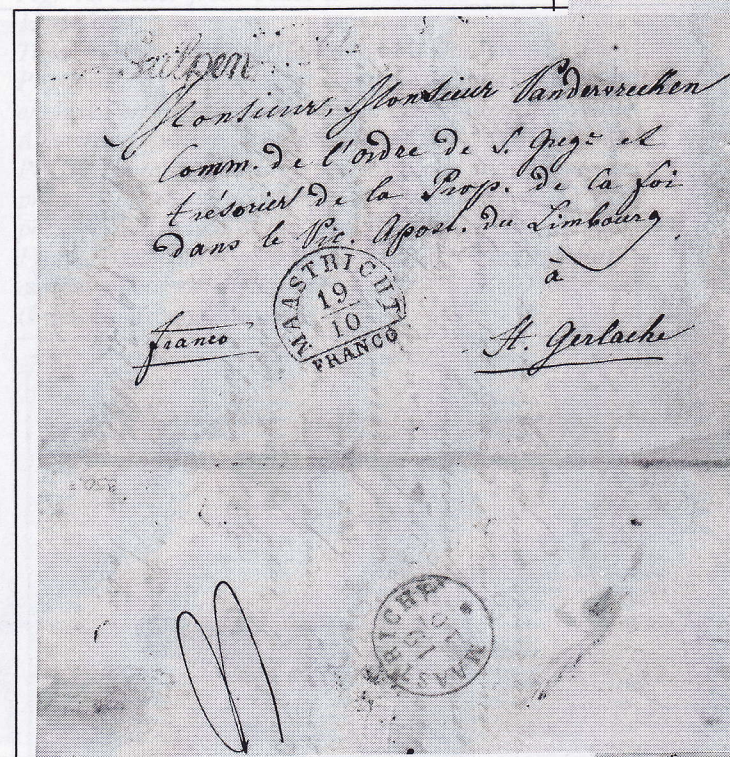 Gulpen
Monsieur, Monsieur Vandervrecken
Comm. de l'ordre de S. Greg^e et
trésorier de la Prop. de la foi
dans le Vic. Apost. du Limbourg
à
MAASTRICHT
19
10
FRANCO
franco
St. Gerlache
MAASTRICHT
19
10